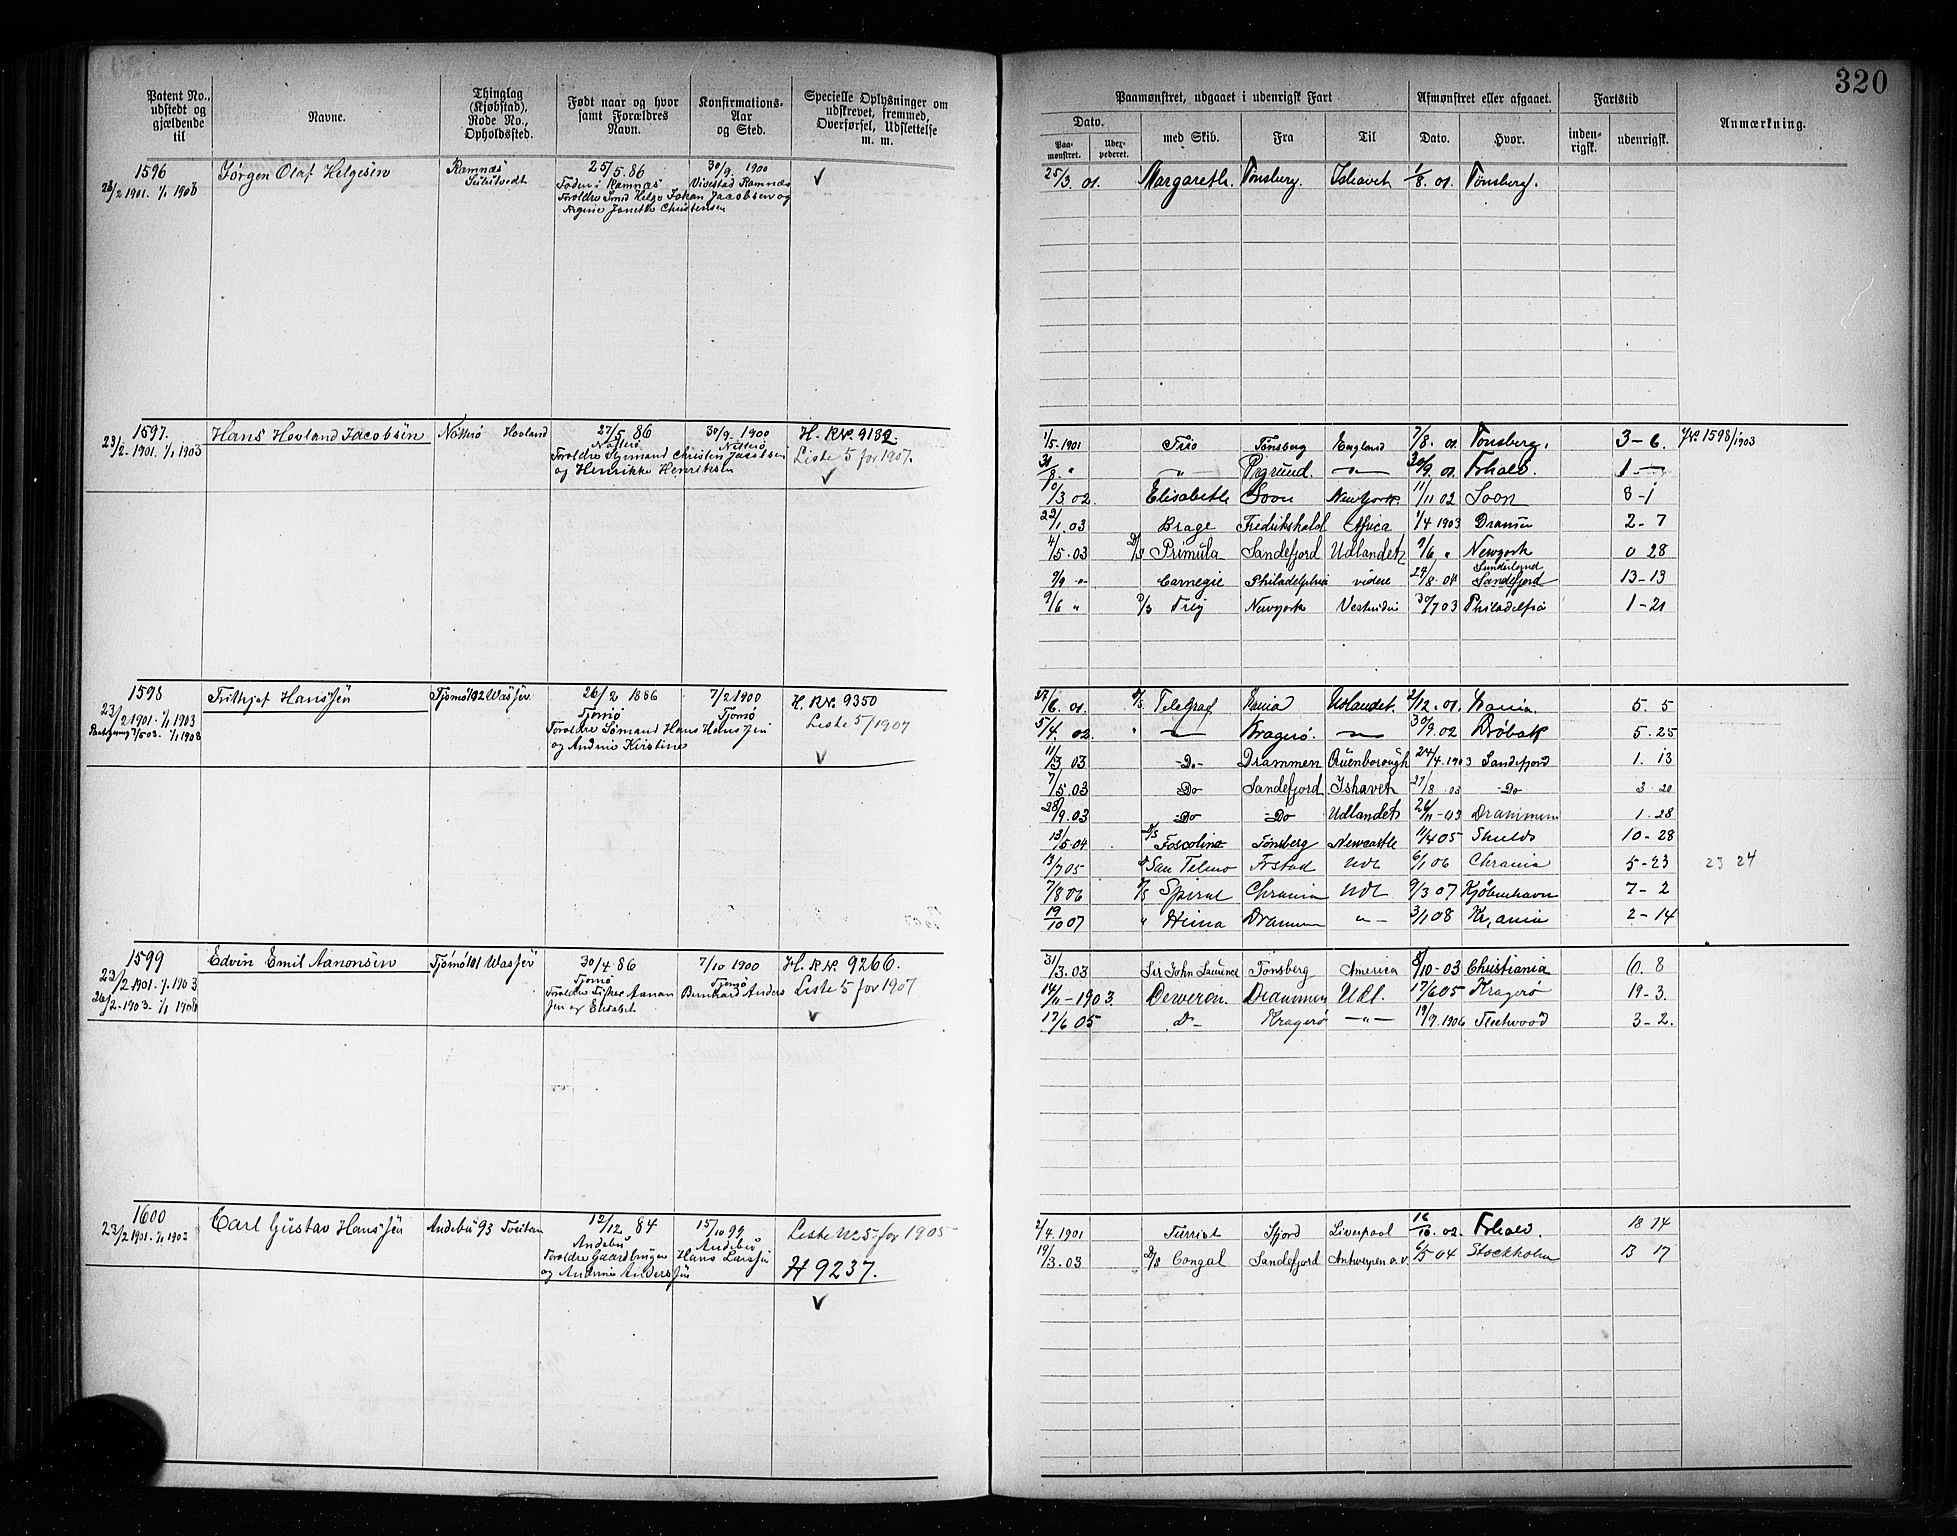 320
Patent No., udstedt og gjældende til
Navne.
Thinglag (Kjøbstad), Rode No., Opholdssted.
Født naar og hvor samt Forældres Navn.
Konfirmations- Aar og Sted.
Specielle Oplysninger om udskrevet, fremmed, Overførsel, Udslettelse m. m.
Paamønstret, udgaaet i udenrigsk Fart
Afmønstret eller afgaaet.
Fartstid
Anmærkning.
Dato.
Paa- mønstret.
Uder- pederet.
med Skib.
Fra
Til
Dato.
Hvor.
inden- rigsk.
udenrigsk.
1596
Jørgen Olaf Helgesen
Ramnæs
25/5. 86
30/9. 1900
Vivestad Ramnæs
Født i Ramnæs
Forældre Smed Helge Johan Jacobsen og
Christensen
25/3. 01. Margareth. Tønsberg. Ishavet 1/8. 01. Tønsberg.
1597.
23/2-1901. 1/1 1903
Hans Hovland Jacobsen
Nøtterø Hovland
27/5 86
Nøtterø
30/9. 1900
Nøtterø
Forældre Sjømand Christen Jacobsen
og Henrikke Henriksen
H. RN. 9182.
Liste 5 for 1907.
1/5-1901 Trio Tønsberg England 7/8. 01 Tønsberg. 3-6. 1598/1903
30/9 01. Frhald. 1 -
/3 02. Elisabeth Soon Newyork 11/11 02 Soon 8-1
22/1. 03 Brage Fredrikshald Africa 1/4 1903 Dramen 2-7
4/5. 03 D/S Primula Sandefjord Udlandet 9/6 " Newyork 0 28
9/9 " Carnegie Philadelphia videre 24/8. 04 Sunderland Sandefjord 13-13
9/6 " D/S Frey Newyork Vestindien 30/7 03 Philadelfia 1-21
1598
23/2 1901. 1/1 1903
Frithjof Hanssen
Tjømø 192 Wasser
26/2 1886
Tjømø
7/2 1900
Tjømø
Forældre Sømand Hans Hanssen
og Andrine Kirstine
H. RN. 9350
Liste 5/1907
27/6. 01. D/S Telegraf Krania Udlandet. 2/12. 01. Krania 5. 5
5/4. 02. " Kragerø. 30/9. 02 Drøbak 5. 25
11/3 03 -Do- Drammen Quenborough 24/4. 1903 Sandefjord 1. 13
7/5. 03 Do Sandefjord Ishavet 27/8. 03 Do 3 20
28/9. 03 Do Do Udlandet 26/11-03 Drammen 1. 28
13/5. 04 D/S Foscolina Tønsberg Newcastle 11/4 05 Shields 10-28
13/7 05 San Telmo Frstad Udl 6/1 06 Chrania 5-23 23 24
7/8 06 D/S Spiral Chrania Udl 9/3 07 Kjøbenhavn 7-2
19/10 07 " Heina Drammen " 3/1 08 Kr,ania 2-14
1599
23/2 1901. 1/1. 1903
26/2-1903. 1/1 1908
Edvin Emil Aanonsen
Tjømø 101 Wasser
30/4 86
Tjømø
7/10 1900
Tjømø
Forældre Fisker Aanon
sen og Elisabet
Bernhard Anders
H. RN. 9266.
Liste 5 for 1907
31/3. 03 Sir John Tønsberg America 8/10-03 Christiania 6. 8
14/11-1903 Deveron Drammen Udl. 17/6 05 Kragerø 19-3.
17/6 05 D- Kragerø -"- 19/9. 1906 Fleetwood 3-2.
1600
23/2 1901. 1/1 1903
Carl Gustav Hanssen
Andebu 93
12/12. 84
Andebu
15/10 99
Andebu
Forældre Gaardbruger Hans Larsen
og Andrine Anderssen
Liste No 5 for 1905
H 9237.
2/4. 1901 Turrist Fjord Liverpool 16/10. 02. Frhald. 18 14
19/3. 03 D/S Congal Sandefjord Antwerpen o. v. 6/5 04 Stockholm 13 17